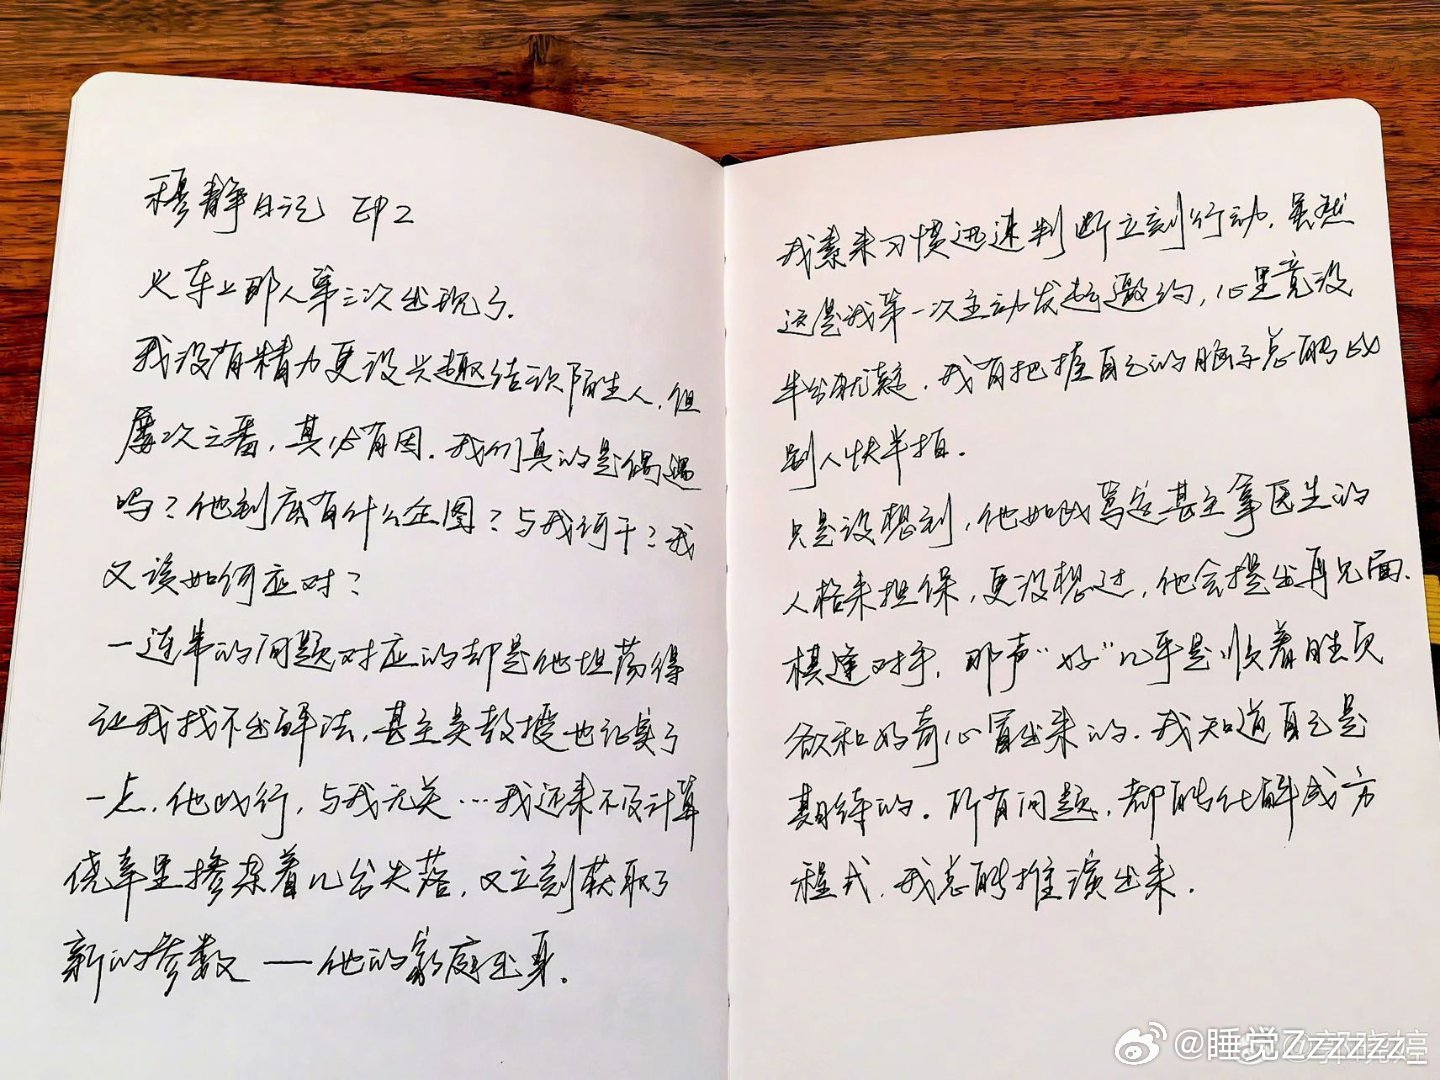 穆静日记 EP2
火车上那人第三次出现了.
我没有精力更没兴趣结识陌生人,但
屡次三番,其必有因.我们真的是偶遇
吗?他到底有什么企图?与我何干?我
又该如何应对?
一连串的问题对应的却是他坦荡得
让我找不出解法,甚至吴教授也证实了
一点.他此行,与我无关…我还来不及计算
侥幸里掺杂着几分失落,又立刻获取了
新的参数——他的家庭出身.
我素来习惯迅速判断立刻行动.虽然
这是我第一次主动发起邀约,心里竟没
半分犹疑.我有把握自己的脑子总能比
别人快半拍.
只是没想到,他如此笃定甚至拿医生的
人格来担保,更没想过,他会提出再见面.
棋逢对手,那声“好”几乎是顺着胜负
欲和好奇心冒出来的.我知道自己是
期待的.所有问题,都能化解成方
程式.我总能推演出来.
@睡觉Zzzzzzz